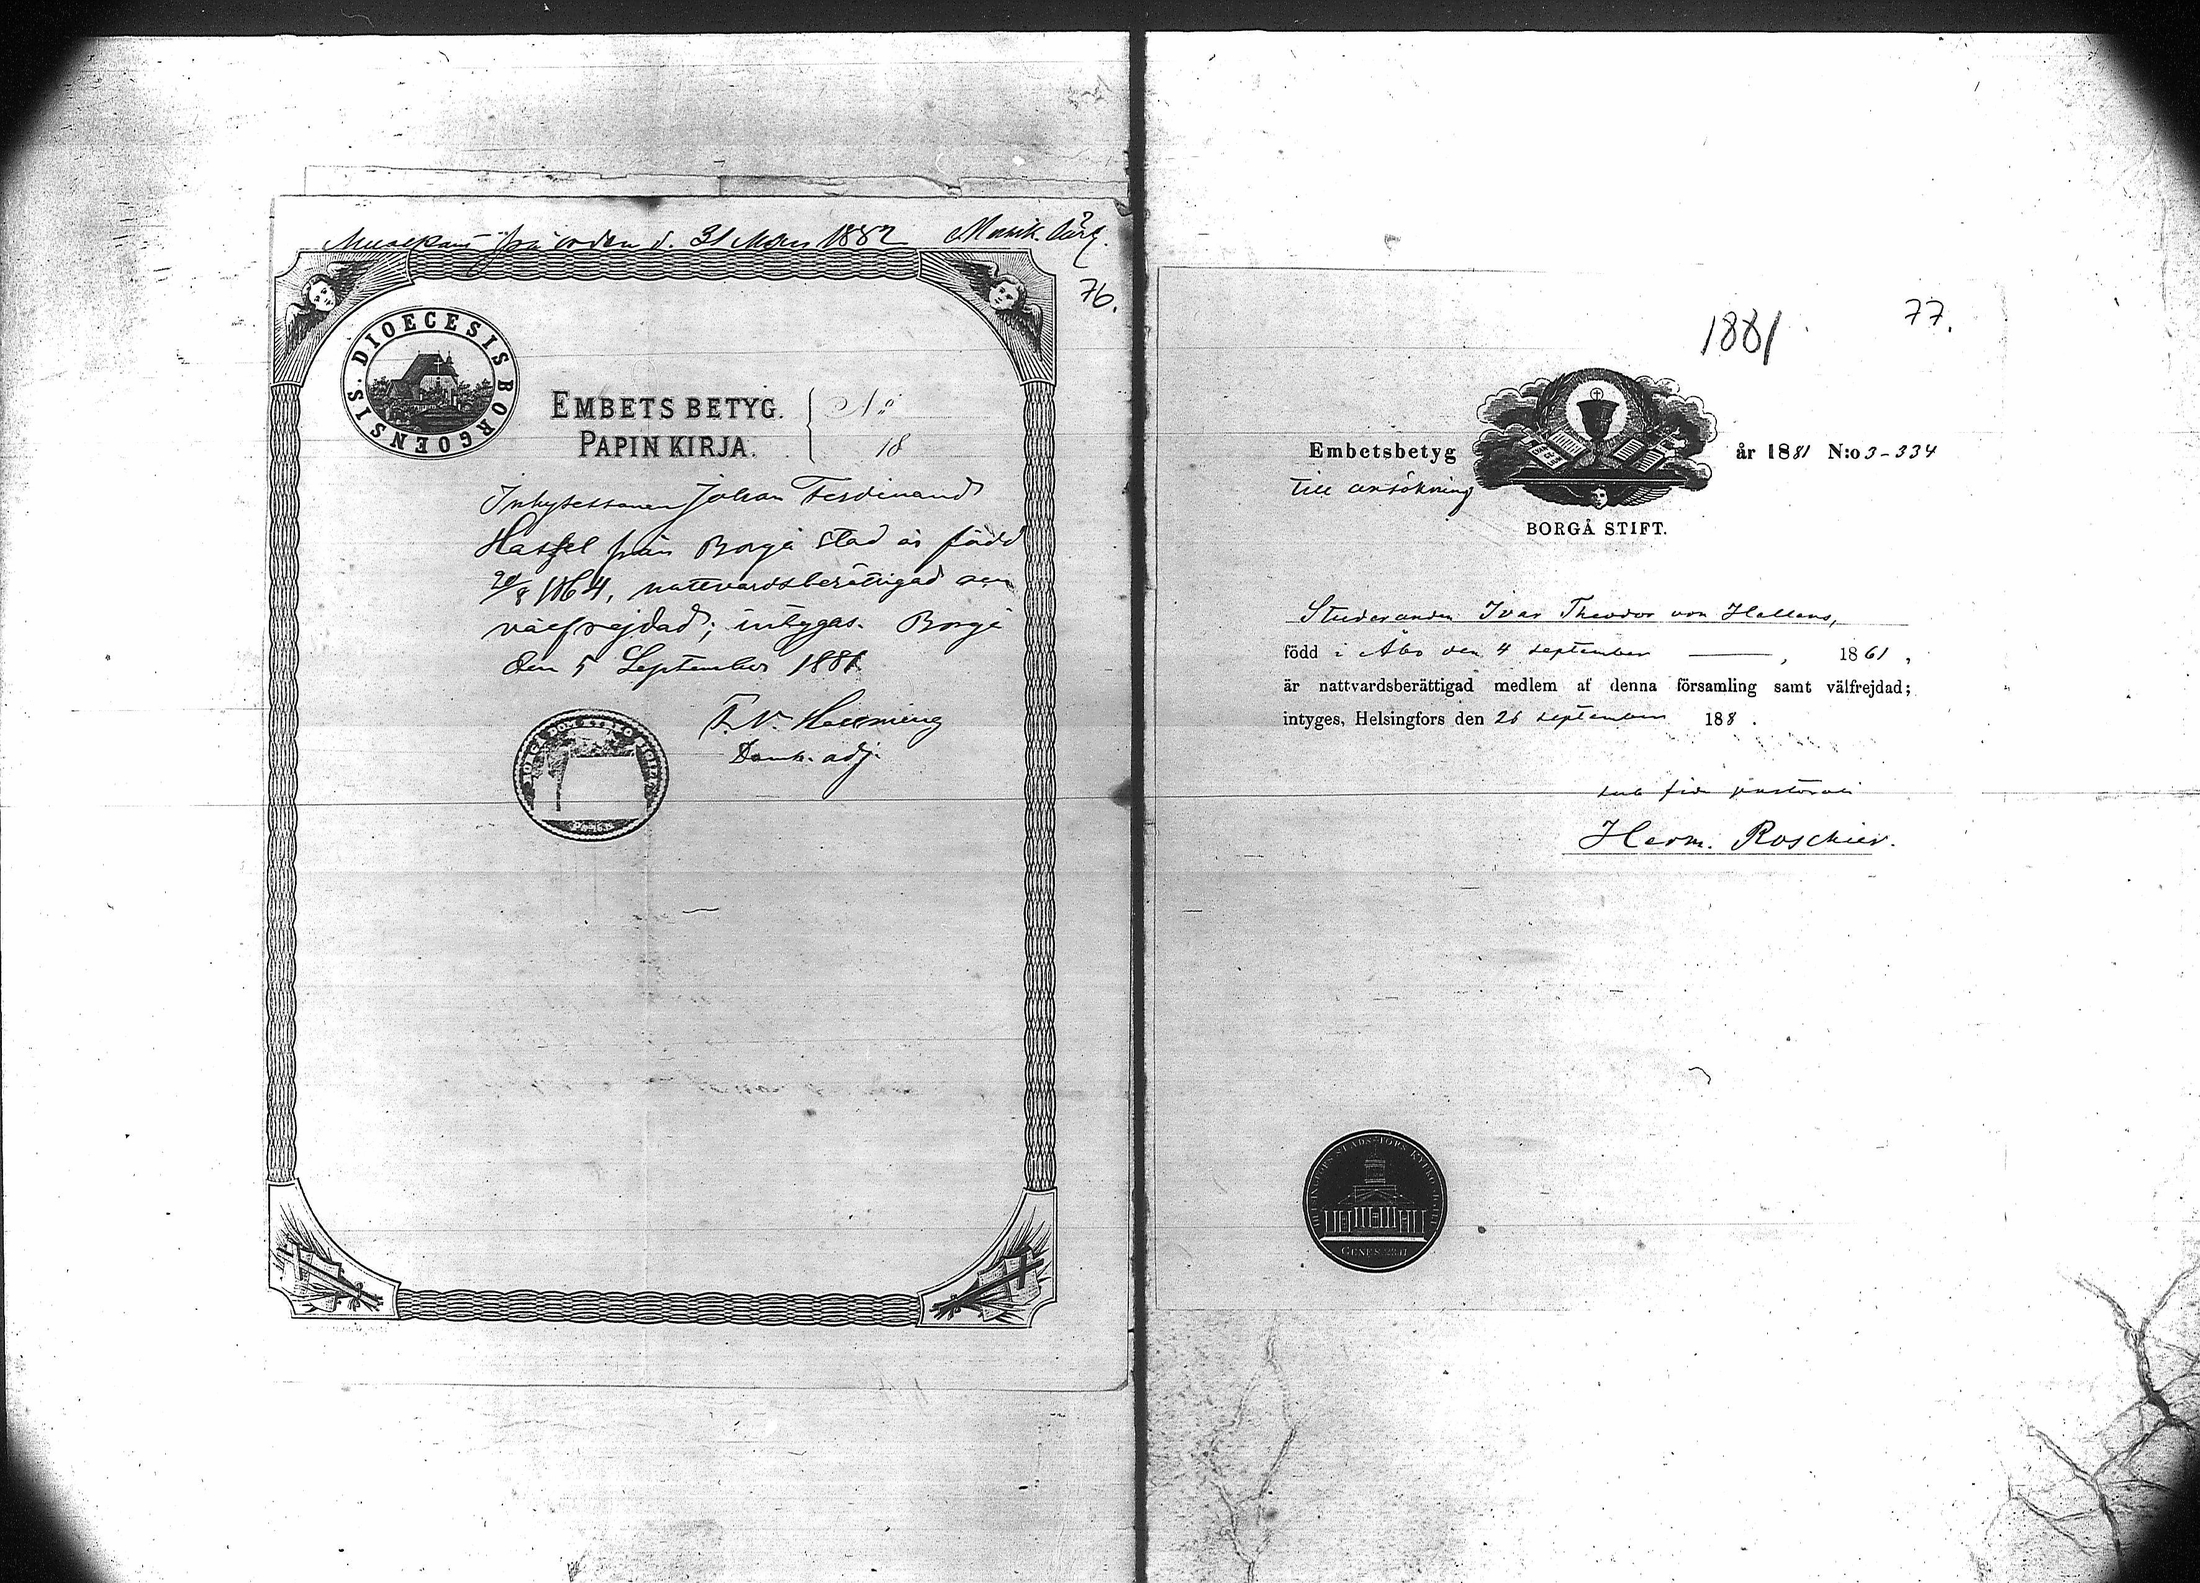 från orden d. 31 Mars 1882 Musik. lärl.
76.
DIOECESIS BORGOENSIS.
EMBETS BETYG.
PAPIN KIRJA.
No
18
Johan Ferdinand
Hassel från Borgå stad är född
20/8 1864, nattvardsberättigad
välfrejdad; intygas. Borgå
den 5 September 1881
F. W. Hemming
Domk. adj.
1881
77.
Embetsbetyg år 1881 N:o 3-334
till ansökning
BORGÅ STIFT.
Studeranden Ivar Theodor von Hellens,
född i Åbo den 4 september ———, 1861,
är nattvardsberättigad medlem af denna församling samt välfrejdad;
intyges, Helsingfors den 26 september 188 .
sub fide pastorali
Herm. Roschier.
HELSINGFORS STADS
GENES. 28.17